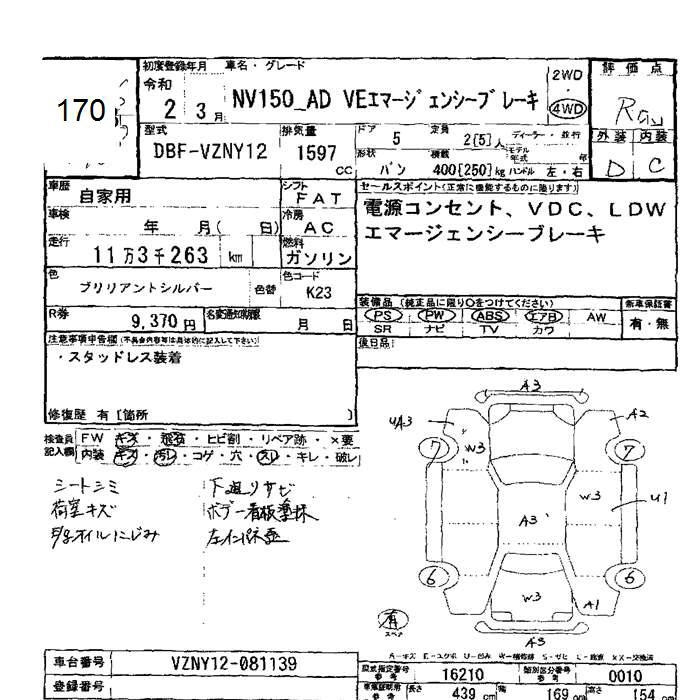 初度登録年月 車名・グレード
評価点
170
令和
2 3月
NV150_AD VEエマージェンシーブレーキ
2WD
4WD
型式
DBF-VZNY12
排気量
1597
CC
ドア 5 定員 2(5)人 ディーラー・並行
形状 バン 積載 400[250]kg ハンドル 左・右
モデル年式 年
外装 内装
D C
車歴 自家用
シフト FAT
車検 年 月( 日)
冷房 AC
走行 11万3千263 km
燃料 ガソリン
色 ブリリアントシルバー 色替
色コード K23
R券 9,370円
名変通知期限 月 日
セールスポイント(正常に機能するものに限ります)
電源コンセント、VDC、LDW
エマージェンシーブレーキ
装備品(純正品に限り○をつけてください)
新車保証書
PS PW ABS エアB AW 有・無
SR ナビ TV カワ
後日品
注意事項申告欄(不具合内容等は具体的に記入して下さい)
・スタッドレス装着
修復歴 有[箇所 ]
検査員記入欄
FW キズ・飛石・ヒビ割・リペア跡・×要
内装 キズ・汚レ・コゲ・穴・スレ・キレ・破レ
シートシミ
荷室キズ
下廻りサビ
ボデー看板塗抹
A3
A2
UA3
W3
7
7
W3
U1
A3
6
6
W3
A1
A3
有
スペア
車台番号 VZNY12-081139
登録番号
型式指定番号 参考 16210
類別区分番号 参考 0010
長さ 439 cm 幅 169 cm 高さ 154 cm